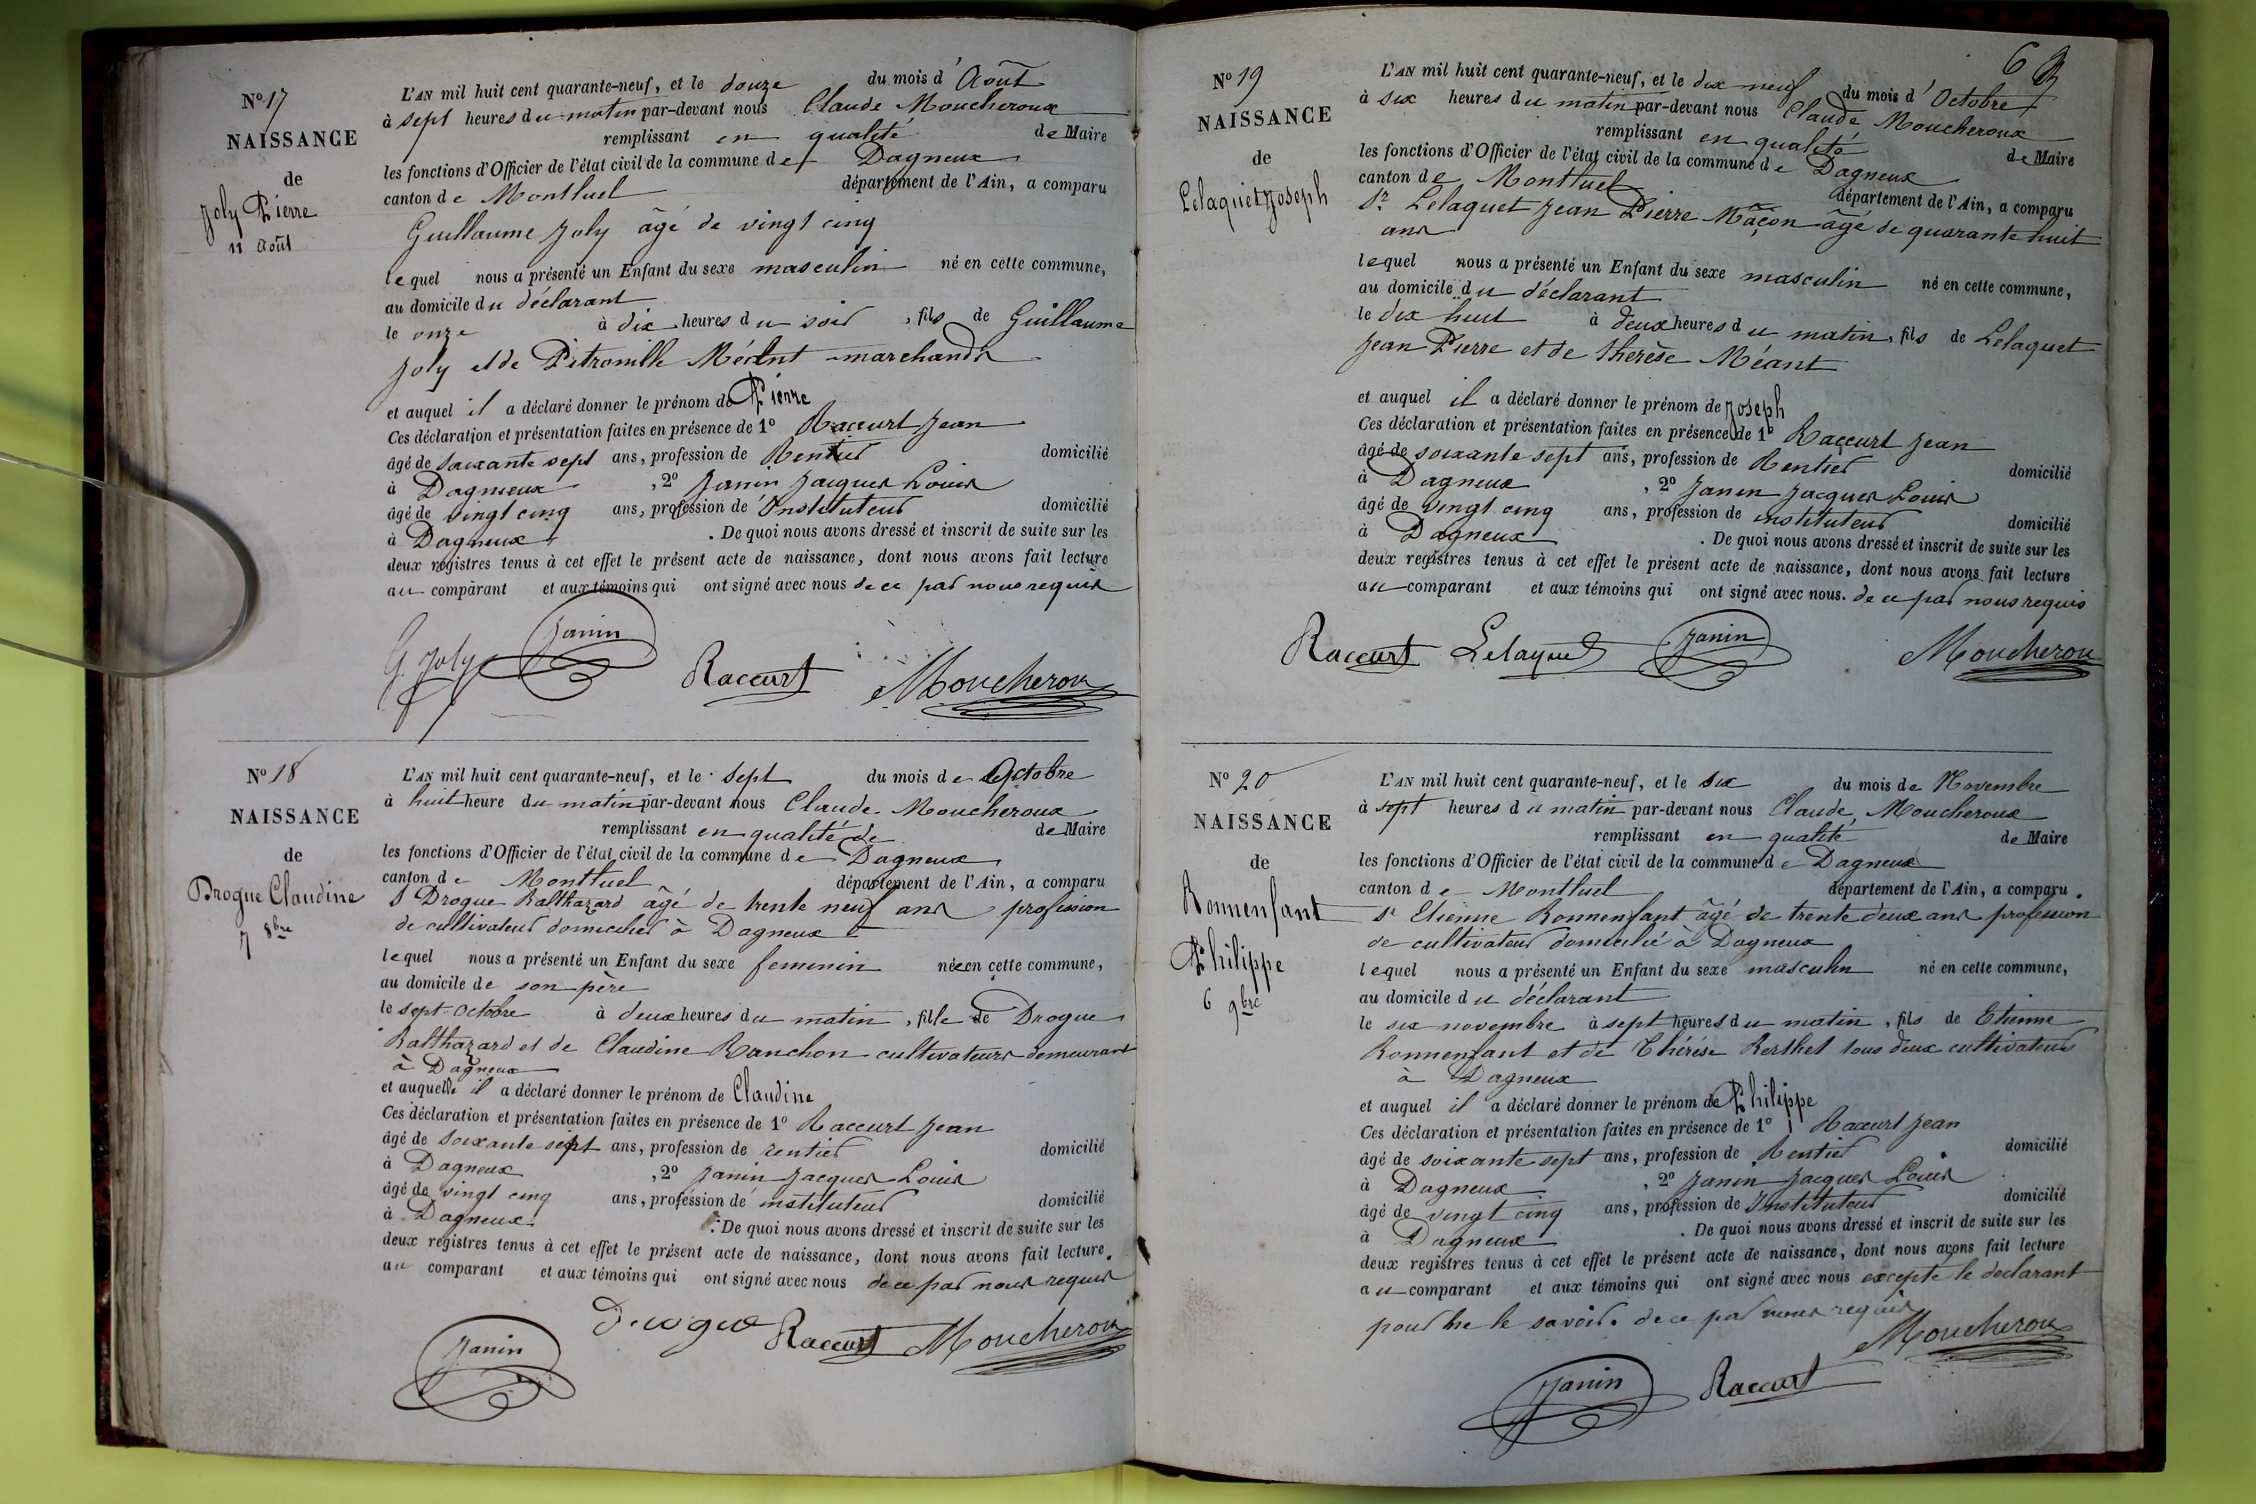 No 17
NAISSANCE
de
Joly Pierre
11 Août
L'AN mil huit cent quarante-neuf, et le douze du mois d' Août
à sept heures du matin par-devant nous Claude Moucheroux
remplissant en qualité de Maire
les fonctions d'Officier de l'état civil de la commune de Dagneux
canton de Montluel département de l'Ain, a comparu
Guillaume Joly âgé de vingt cinq
lequel nous a présenté un Enfant du sexe masculin né en cette commune,
au domicile du déclarant
le onze à dix heures du soir, fils de Guillaume
Joly et de Pétronille Méant marchands
et auquel il a déclaré donner le prénom de Pierre
Ces déclaration et présentation faites en présence de 1o Raccurt Jean
âgé de soixante sept ans, profession de Rentier domicilié
à Dagneux, 2o Janin Jacques Louis
âgé de vingt cinq ans, profession de Instituteur domicilié
à Dagneux. De quoi nous avons dressé et inscrit de suite sur les
deux registres tenus à cet effet le présent acte de naissance, dont nous avons fait lecture
au comparant et aux témoins qui ont signé avec nous de ce par nous requis
G. Joly Janin Raccurt Moucheroux
No 18
NAISSANCE
de
Drogue Claudine
7 8bre
L'AN mil huit cent quarante-neuf, et le sept du mois de Octobre
à huit heure du matin par-devant nous Claude Moucheroux
remplissant en qualité de de Maire
les fonctions d'Officier de l'état civil de la commune de Dagneux
canton de Montluel département de l'Ain, a comparu
S Drogue Balthazard âgé de trente neuf ans profession
de cultivateur domicilié à Dagneux
lequel nous a présenté un Enfant du sexe feminin née en cette commune,
au domicile de son père
le sept Octobre à deux heures du matin, fille de Drogue
Balthazard et de Claudine Ranchon cultivateurs demeurant
à Dagneux
et auquelle il a déclaré donner le prénom de Claudine
Ces déclaration et présentation faites en présence de 1o Raccurt Jean
âgé de soixante sept ans, profession de rentier domicilié
à Dagneux, 2o Janin Jacques Louis
âgé de vingt cinq ans, profession de instituteur domicilié
à Dagneux. De quoi nous avons dressé et inscrit de suite sur les
deux registres tenus à cet effet le présent acte de naissance, dont nous avons fait lecture
au comparant et aux témoins qui ont signé avec nous de ce par nous requis
Janin Drogue Raccurt Moucheroux
6
No 19
NAISSANCE
de
Lelaquet Joseph
L'AN mil huit cent quarante-neuf, et le dix neuf du mois d' Octobre
à six heures du matin par-devant nous Claude Moucheroux
remplissant en qualité de Maire
les fonctions d'Officier de l'état civil de la commune de Dagneux
canton de Montluel département de l'Ain, a comparu
Sr Lelaquet Jean Pierre Mâçon âgé de quarante huit
ans
lequel nous a présenté un Enfant du sexe masculin né en cette commune,
au domicile du déclarant
le dix huit à deux heures du matin, fils de Lelaquet
Jean Pierre et de Therèse Méant
et auquel il a déclaré donner le prénom de Joseph
Ces déclaration et présentation faites en présence de 1o Raccurt Jean
âgé de soixante sept ans, profession de Rentier domicilié
à Dagneux, 2o Janin Jacques Louis
âgé de vingt cinq ans, profession de instituteur domicilié
à Dagneux. De quoi nous avons dressé et inscrit de suite sur les
deux registres tenus à cet effet le présent acte de naissance, dont nous avons fait lecture
au comparant et aux témoins qui ont signé avec nous. de ce par nous requis
Raccurt Lelaquet Janin Moucheroux
No 20
NAISSANCE
de
Bonnenfant
Philippe
6 9bre
L'AN mil huit cent quarante-neuf, et le six du mois de Novembre
à sept heures du matin par-devant nous Claude Moucheroux
remplissant en qualité de Maire
les fonctions d'Officier de l'état civil de la commune de Dagneux
canton de Montluel département de l'Ain, a comparu
Sr Etienne Bonnenfant âgé de trente deux ans profession
de cultivateur domicilié à Dagneux
lequel nous a présenté un Enfant du sexe masculin né en cette commune,
au domicile du déclarant
le six novembre à sept heures du matin, fils de Etienne
Bonnenfant et de Thérèse Berthet tous deux cultivateurs
à Dagneux
et auquel il a déclaré donner le prénom de Philippe
Ces déclaration et présentation faites en présence de 1o Raccurt Jean
âgé de soixante sept ans, profession de Rentier domicilié
à Dagneux, 2o Janin Jacques Louis
âgé de vingt cinq ans, profession de Instituteur domicilié
à Dagneux. De quoi nous avons dressé et inscrit de suite sur les
deux registres tenus à cet effet le présent acte de naissance, dont nous avons fait lecture
au comparant et aux témoins qui ont signé avec nous excepté le declarant
pour ne le savoir. de ce par nous requis
Moucheroux
Janin Raccurt